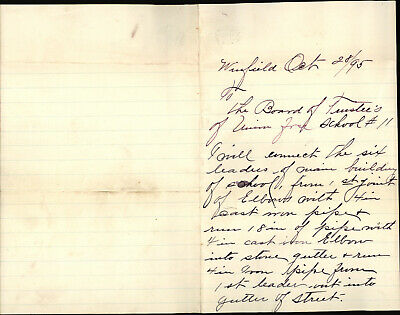 Winfield Oct 28/95
To
The Board of Trustee's
of Union Free School # 11
I will connect the six
leaders of main building
of school, from 1st joint
of Elbows with 4 in
cast iron pipe &
run 18 in of pipe with
4 in cast iron Elbow
into stone gutter & run
4 in Iron pipe from
1st leader out into
gutter of street.